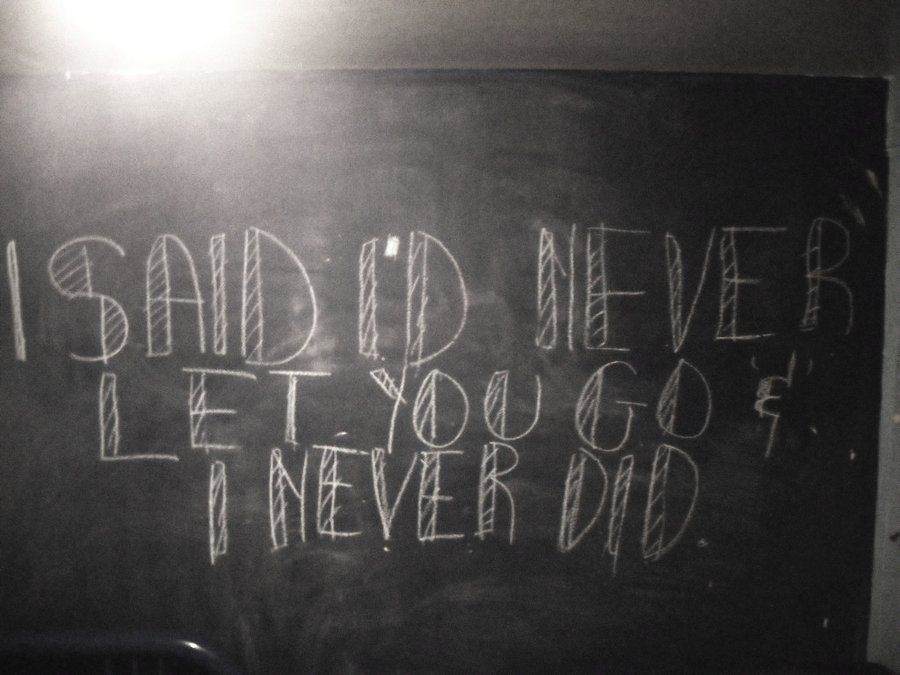 I SAID I'D NEVER
LET YOU GO &
I NEVER DID.